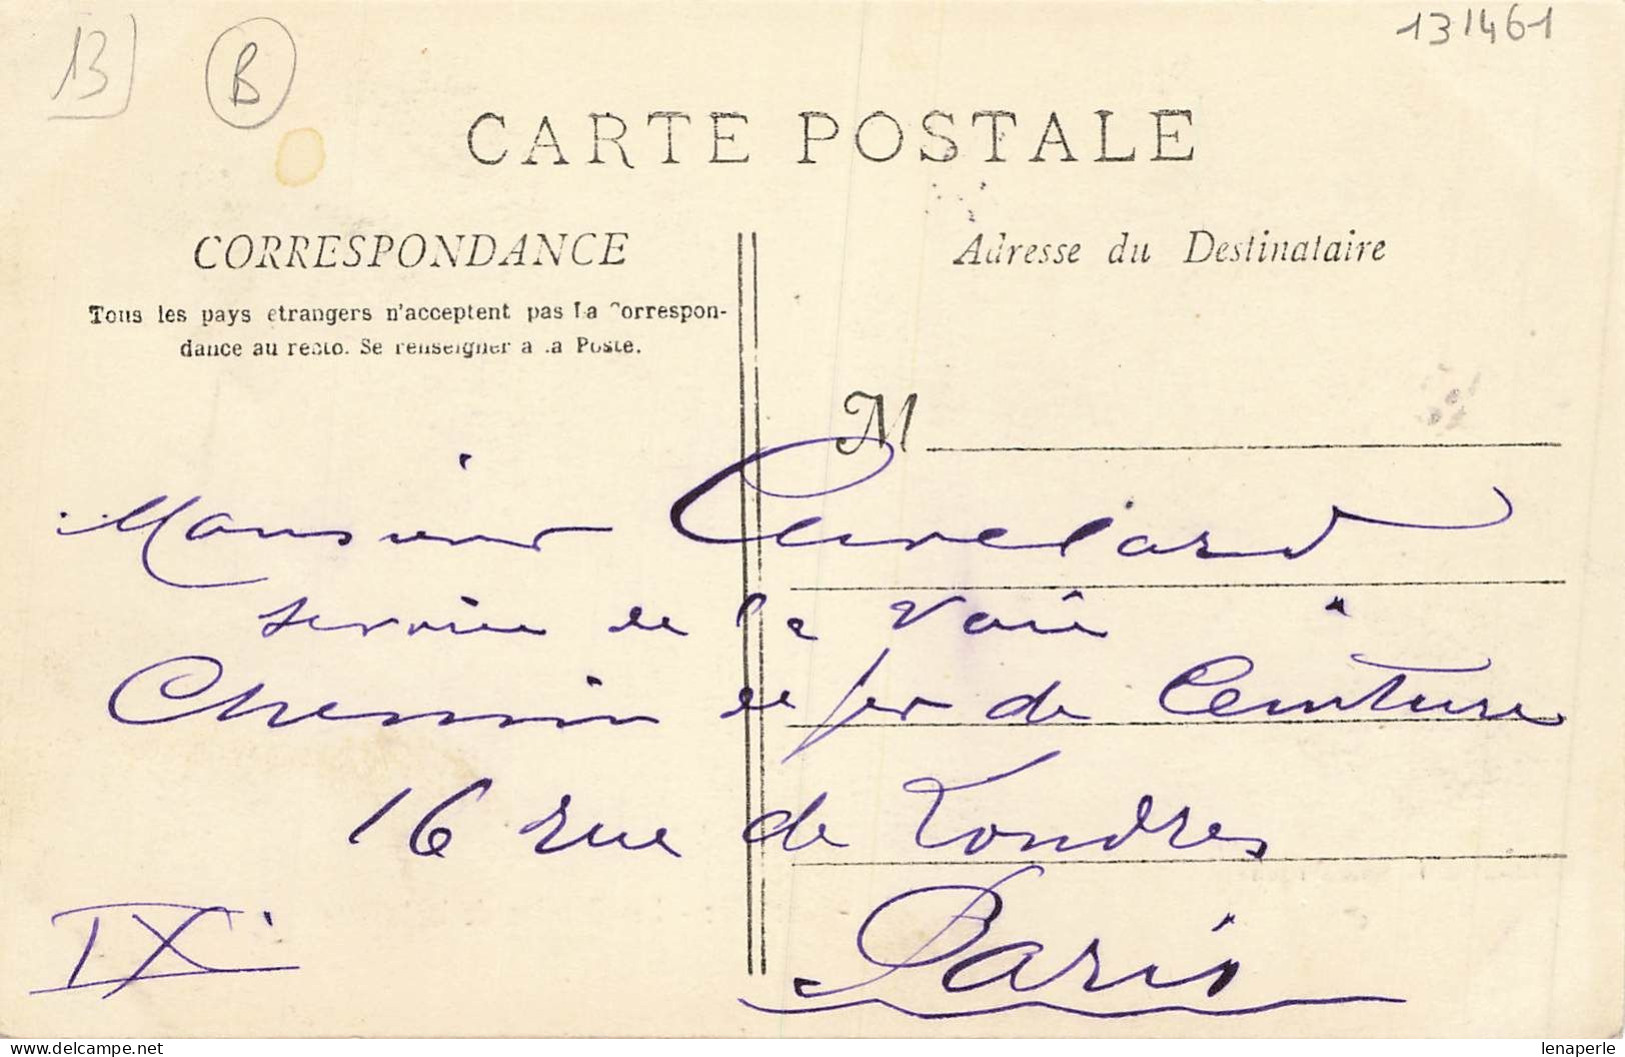 131461
13
B
CARTE POSTALE
CORRESPONDANCE
Adresse du Destinataire
Tous les pays etrangers n'acceptent pas La Correspon-
dance au recto. Se renseigner a la Poste.
M
Monsieur Cuvelard
service de la Voie
Chemin de fer de Ceinture
16 rue de Londres
IX
Paris
lenaperle